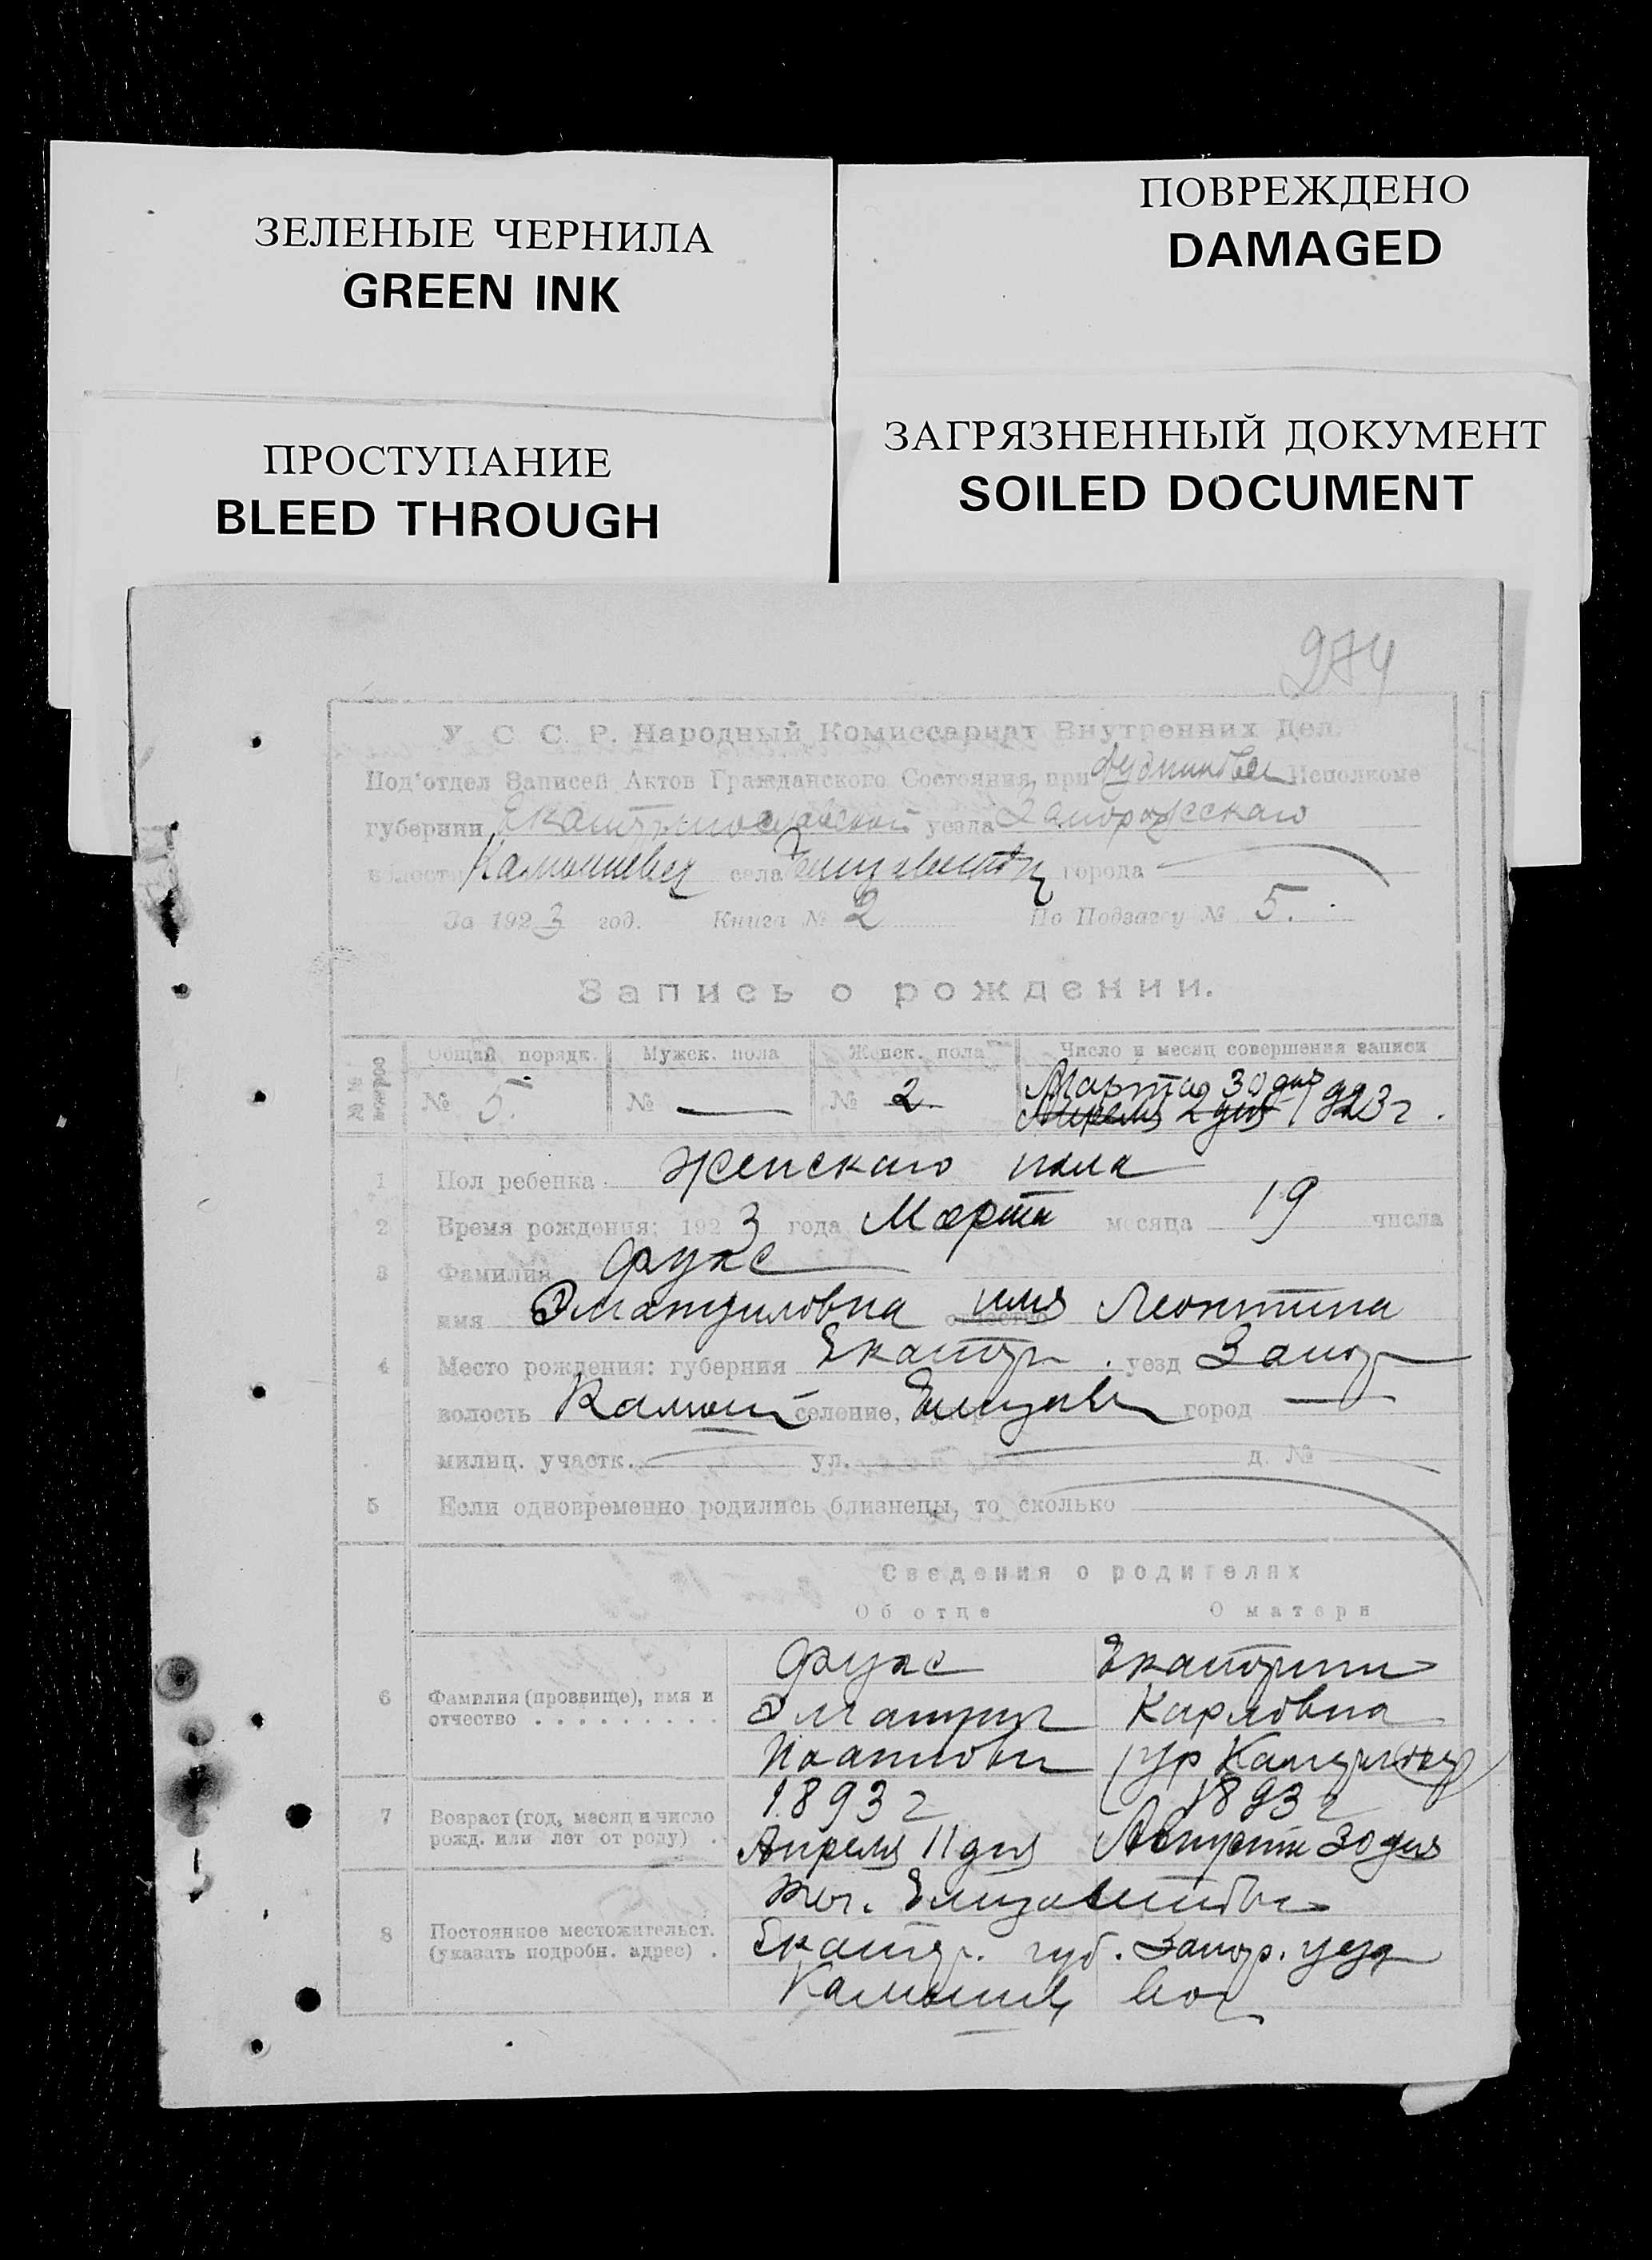 ЗЕЛЕНЫЕ ЧЕРНИЛА
GREEN INK
ПОВРЕЖДЕНО
DAMAGED
ПРОСТУПАНИЕ
BLEED THROUGH
ЗАГРЯЗНЕННЫЙ ДОКУМЕНТ
SOILED DOCUMENT
274
У С С Р. Народный Комиссариат Внутренних Дел.
Под'отдел Записей Актов Гражданского Состояния, при Исполкоме
губернии Екатеринославской уезда Запорожскаго
волости села города
За 1923 год. Книга № 2 По Подзагсу № 5.
Запись о рождении.
№№ вопрос Общий порядк. Мужск. пола Женск. пола Число и месяц совершения записи
№ 5. № — № 2 Марта 30 дня
Апреля 2 дня 1923 г.
1 Пол ребенка Женскаго пола
2 Время рождения: 1923 года Марта месяца 19 числа
3 Фамилия Фукс
имя Эмануиловна отчество имя Леонтина
4 Место рождения: губерния Екатер. уезд Запор
волость селение, Елизав город —
милиц. участк. ул. д. №
5 Если одновременно родились близнецы, то сколько
Сведения о родителях
Об отце О матери
6 Фамилия (прозвище), имя и отчество Фукс Екатерина
Эмануил Карловна
7 Возраст (год, месяц и число рожд. или лет от роду) 1893 г 1893 г
Апреля 11 дня Августа 30 дня
8 Постоянное местожительст. (указать подробн. адрес)
Екатер. губ. Запор. уезд
вол